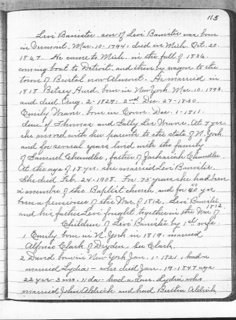 115
Levi Banister, son of Levi Banister was born
in Vermont, Mar. 10, 1794. died in Mich. Oct. 29
1867. He came to Mich. in the fall of 1836
coming boat to Detroit, and then by wagon to the
town of Bristol near Almont. He married in
1818 Betsey Hurd, born in New York Mar. 10, 1798
and died Aug. 2, 1839. 2nd Dec 27-1840
Emily Drane, born in Conn. Dec. 1, 1811,
dau. of Thomas and Sally Lee Drane. At 7 yr
she moved with her parents to the state of N. York
and for several years lived with the family
of Samuel Chandler, father of Zachariah Chandler
At the age of 18 yr she married Levi Banister.
She died Feb. 24-1898. For 75 years she had been
a member of the Baptist church and for 20 yr
been a pensioner of the War of 1812. Levi Banister
and his father-in-law fought together in the War of 1812
Children of Levi Banister by 1st wife
1 Emily born in N. York in 1819, married
Alfred Clark of Dryden, Co Clark
2 David born in New York Jan. 11-1821, had a
married Lydia - who died Jan. 19, 1847 age
22 yr 2 mo. 1 da. had a dau. Lydia who
married John Aldrich and had Burton Aldrich